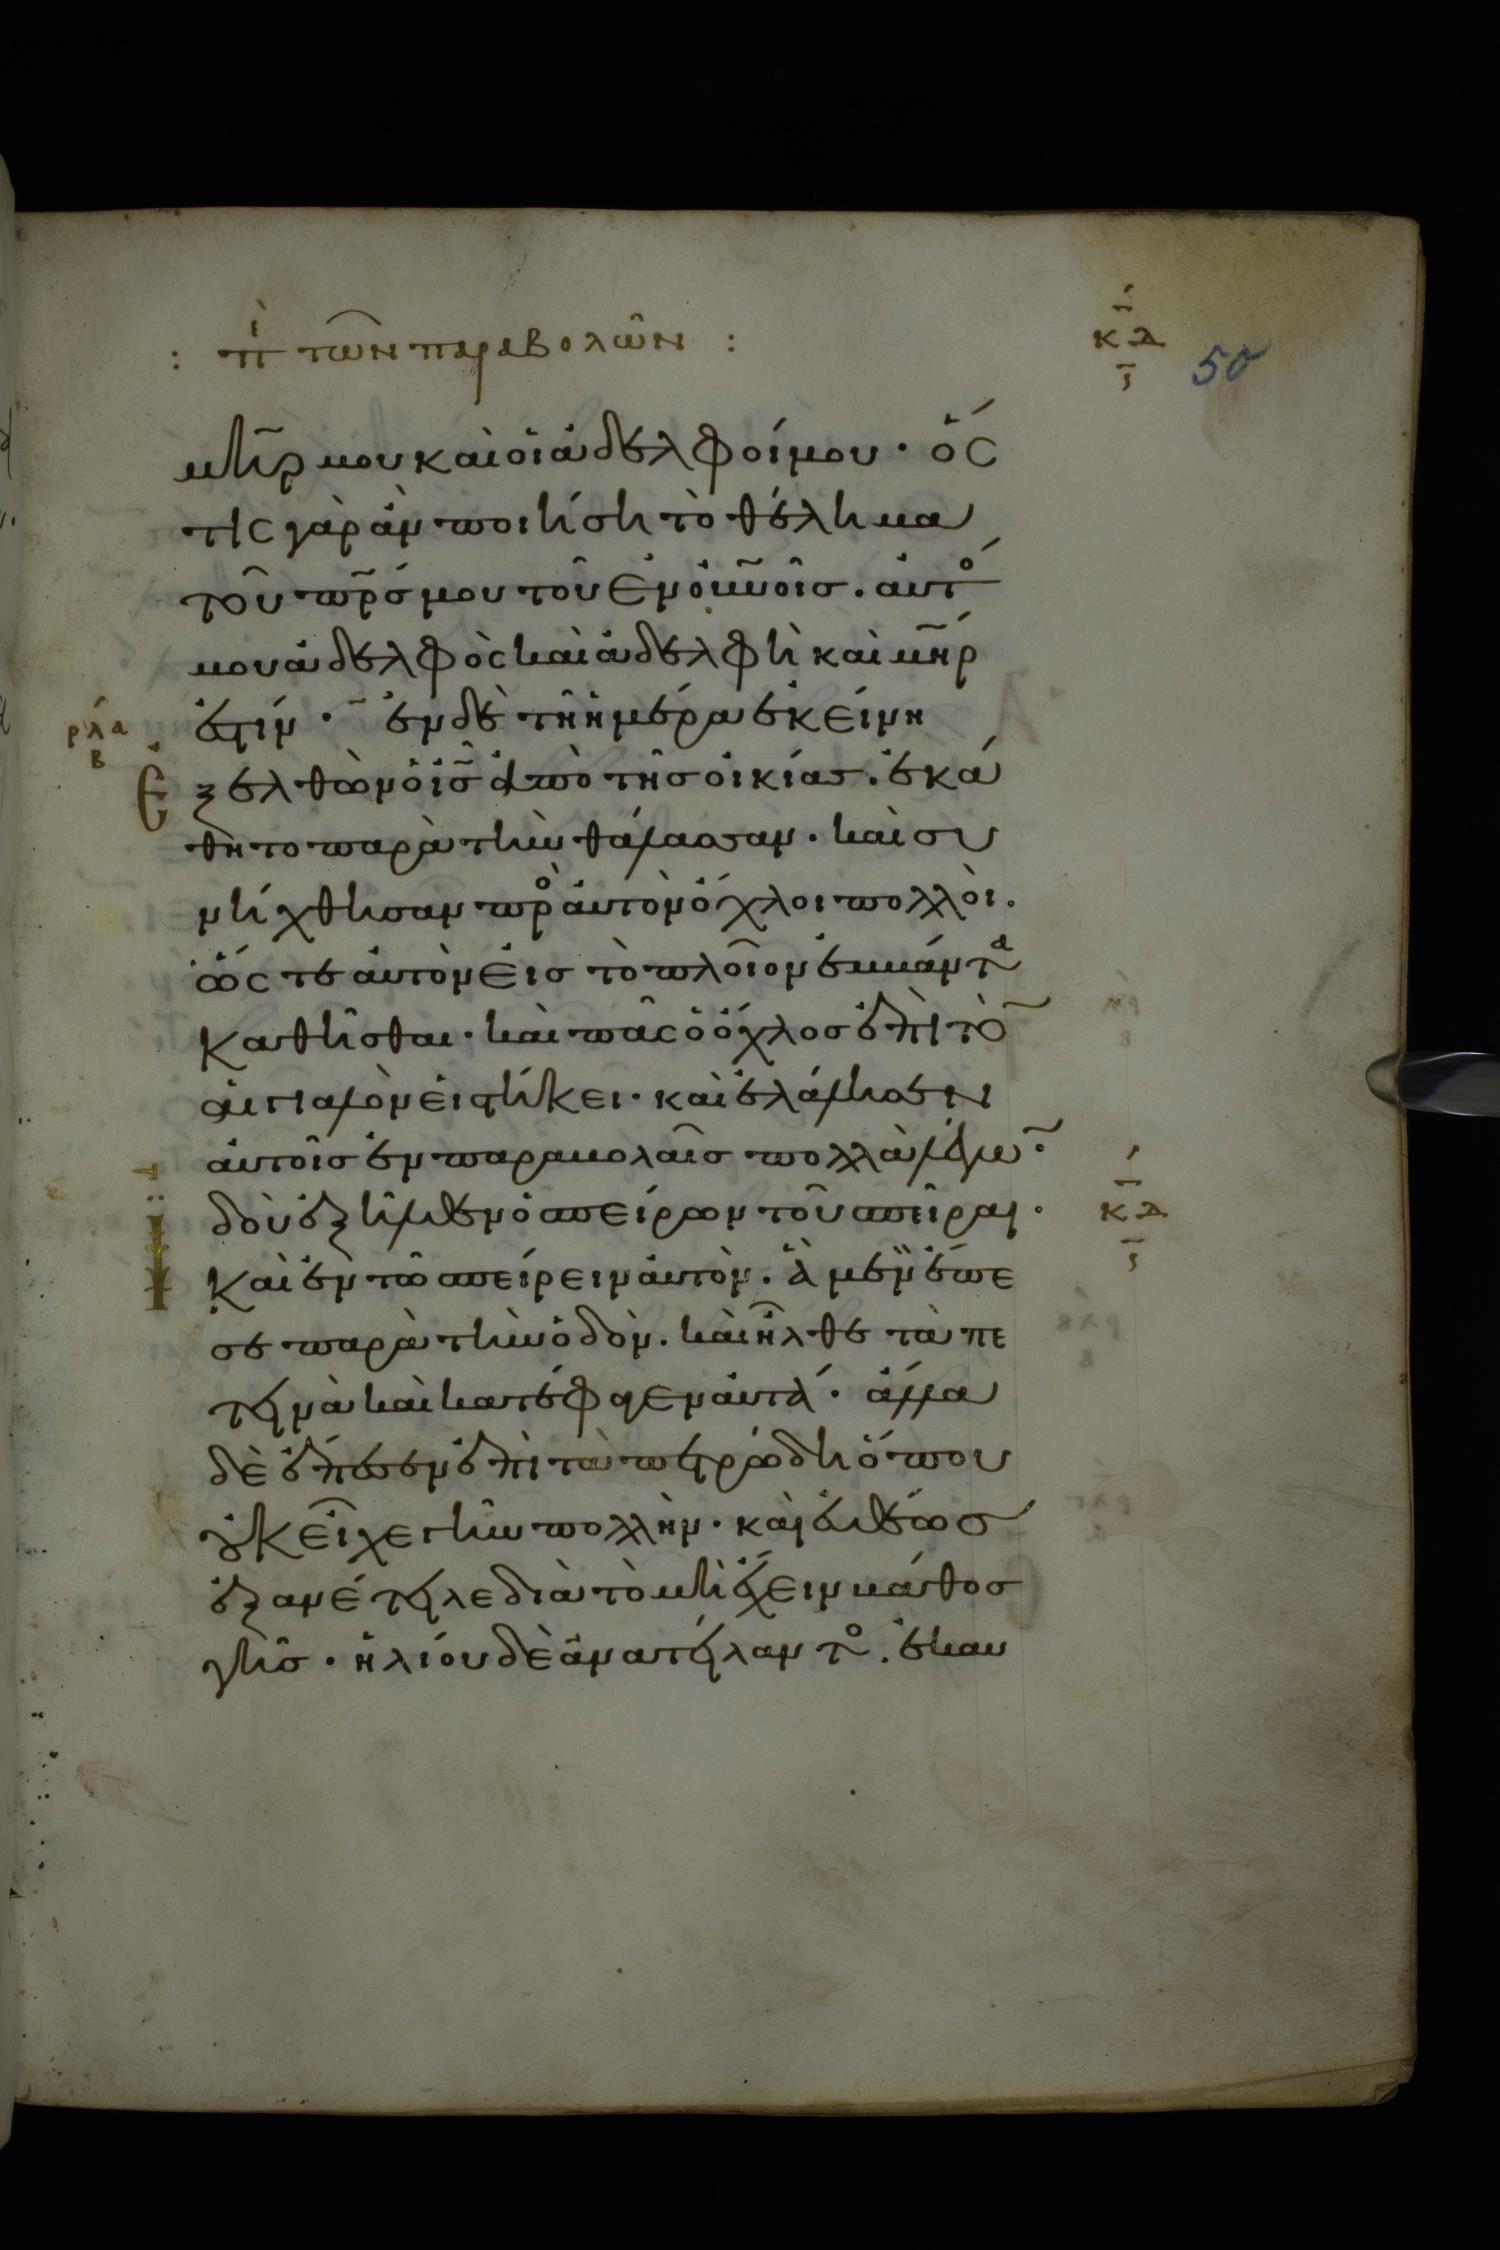 : πὶ τῶν παραβολῶν :
κδ
50
μη̅ρ μου καὶ οἱ ἀδελφοί μου · ὅσ
τις γὰρ ἂν ποιήση τὸ θέλημα
τοῦ π̅ρ̅ς μου τοῦ ἐν ο̅υ̅νοῖς . αὐτό
μου ἀδελφὸς καὶ ἀδελφὴ καὶ μ̅η̅ρ
ἐστίν · ἐν δὲ τῆ ἡμέρα ἐκείνη
ρλα
β
Ἐξελθὼν ὁ ι̅ς̅ ἀπὸ τῆς οἰκίας . ἐκά
θητο παρὰ τὴν θάλασσαν · καὶ συ
νήχθησαν πρὸ αὐτὸν ὄχλοι πολλοὶ .
ὥστε αὐτὸν εἰς τὸ πλοῖον ἐμβάντα
καθῆσθαι · καὶ πᾶς ὁ ὄχλος ἐπὶ τὸ
αἰγιαλὸν εἱστήκει · καὶ ἐλάλησεν
αὐτοῖς ἐν παραβολαῖς πολλὰ λέγω ·
κδ
Ἰδοὺ ἐξῆλθεν ὁ σπείρων τοῦ σπεῖραι ·
καὶ ἐν τῶ σπείρειν αὐτὸν . ἃ μὲν ἔπε
σε παρὰ τὴν ὁδὸν . καὶ ἦλθε τὰ πε
τεινὰ καὶ κατέφαγεν αὐτά · ἄλλα
δὲ ἔπεσεν ἐπὶ τὰ πετρώδη ὅπου
οὐκ εἶχε γῆν πολλὴν · καὶ εὐθέως
ἐξανέτειλε διὰ τὸ μὴ ἔχειν βάθος
γῆς · ἡλίου δὲ ἀνατείλαντο . ἐκαυ